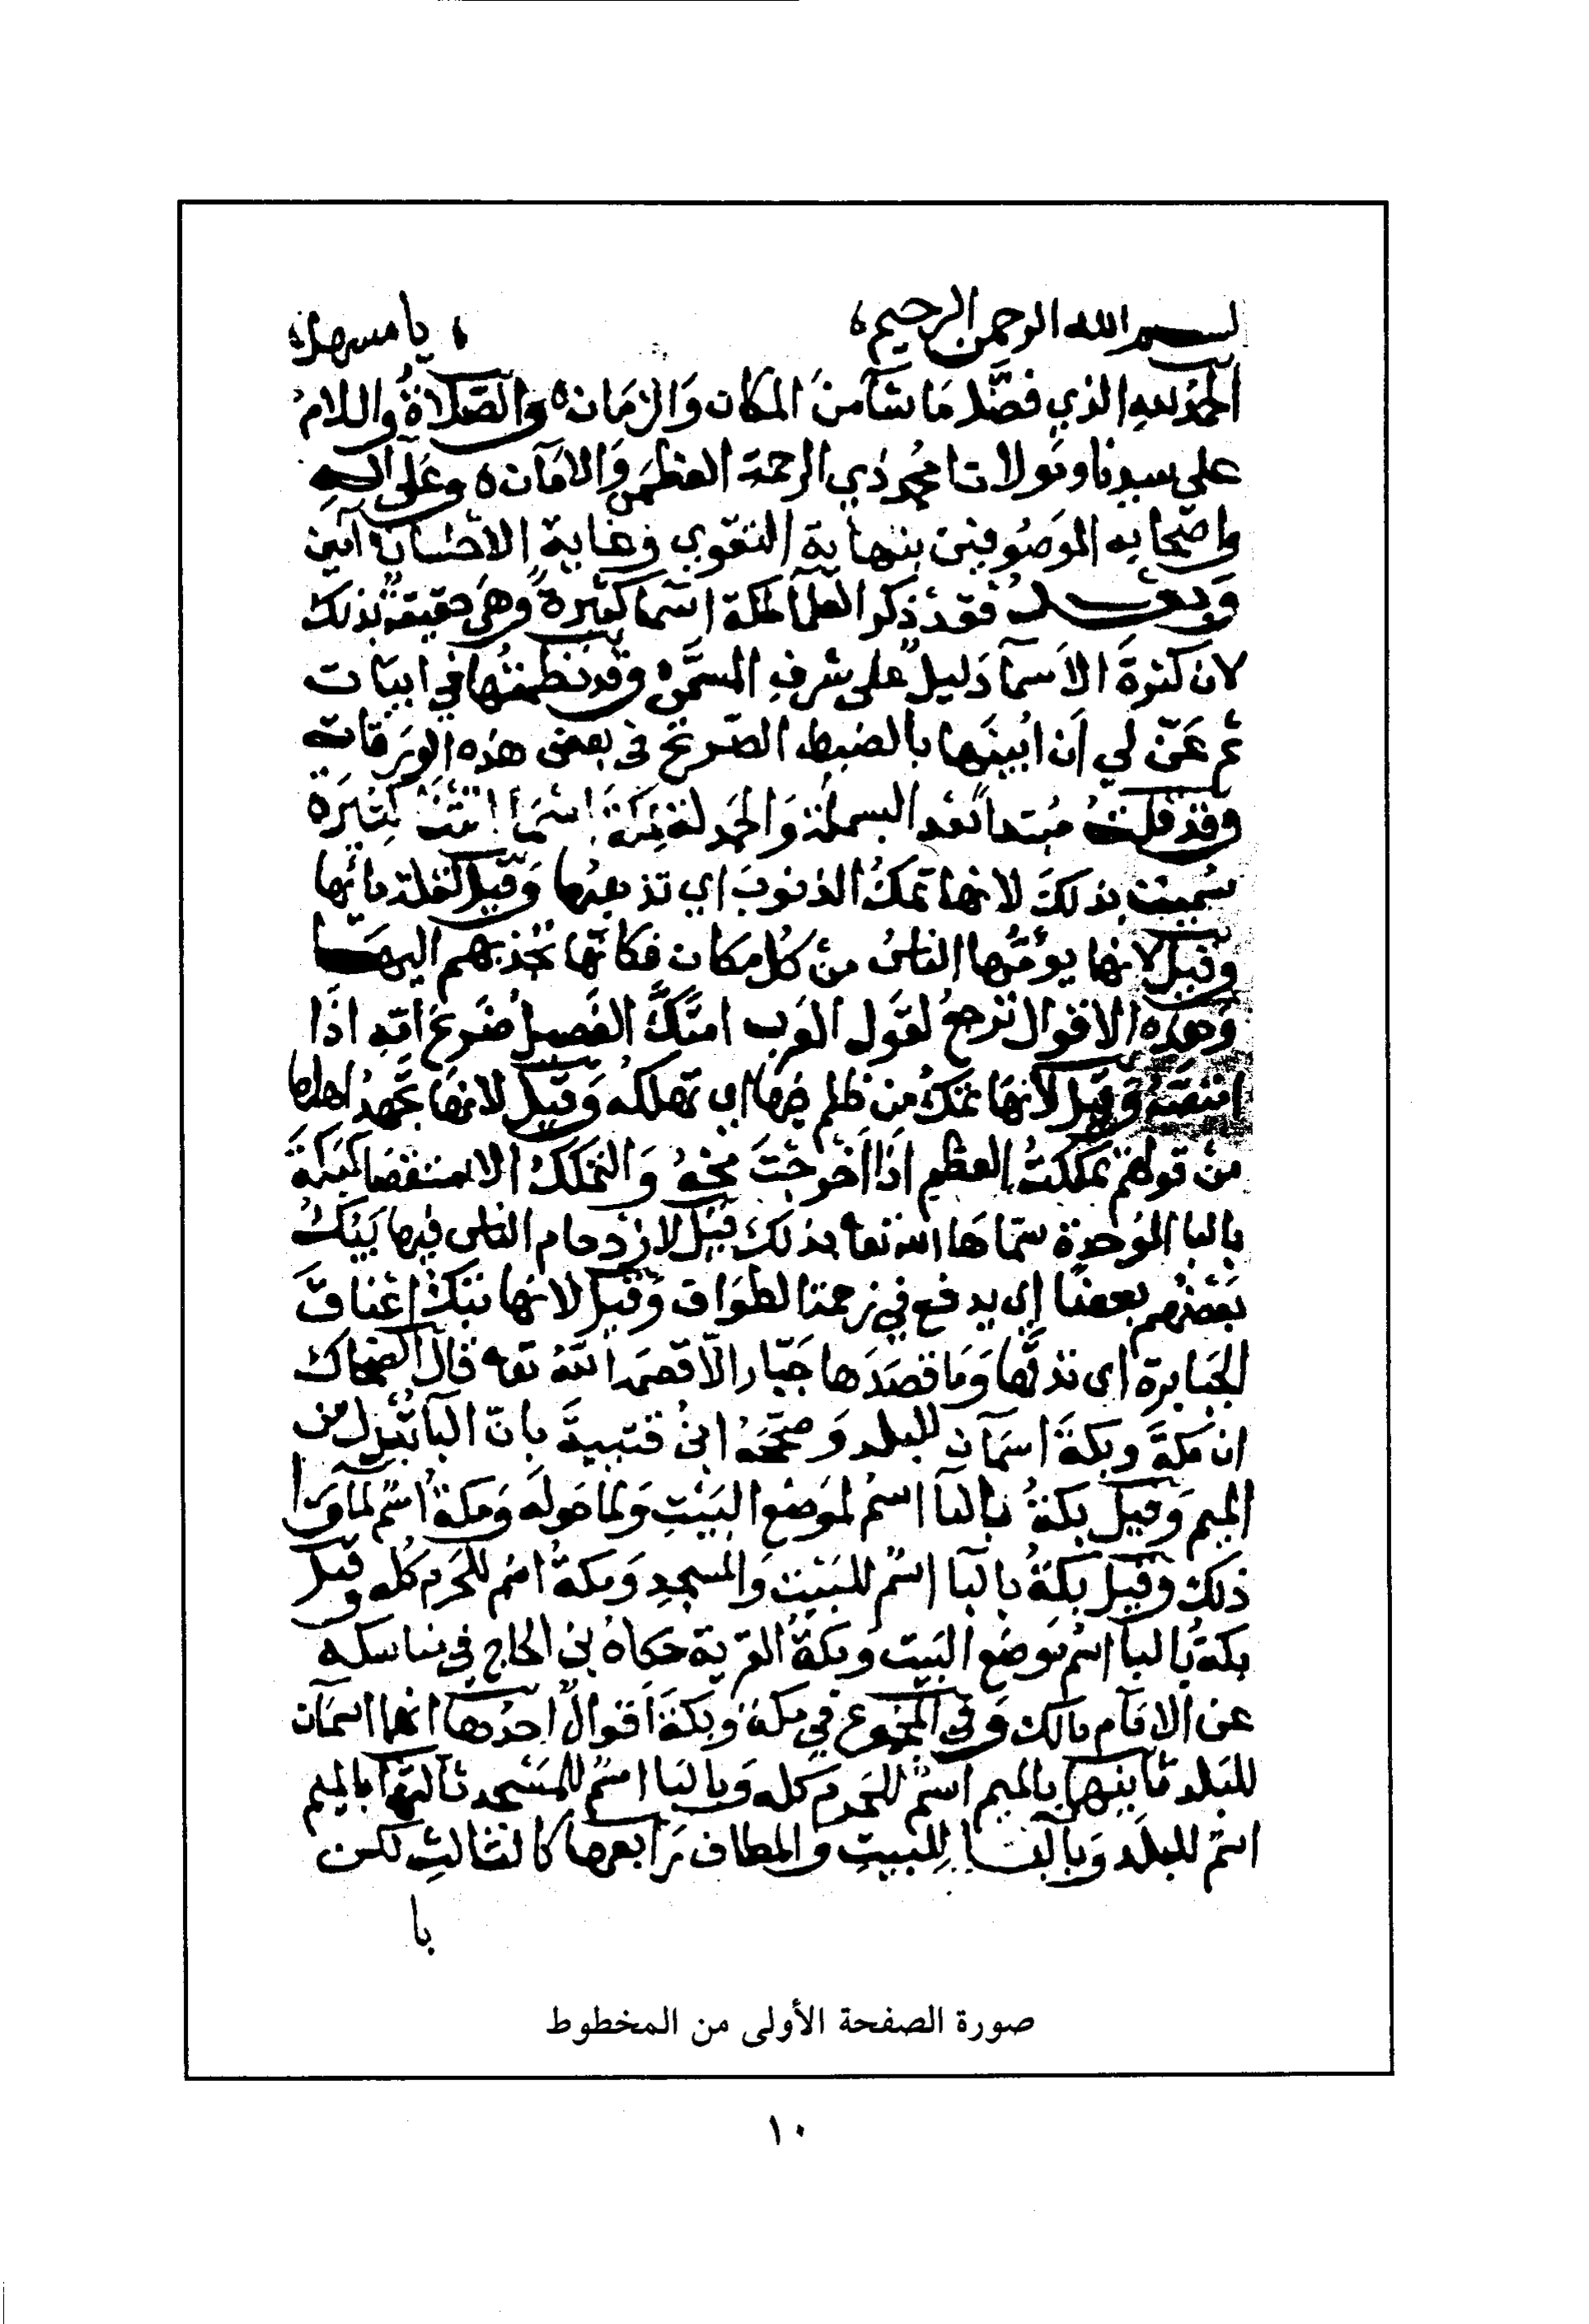 بسم الله الرحمن الرحيم ، يا مسهل
الحمد لله الذي فضّل ما شآ منَ المكان وَالزمَان ه والصّلاةُ واللام
على سيدنا ومَولانا محمد ذي الرحمة العظمى وَالامَان ه وعَلَى اله
واصْحابه الموَصُوفين بنهاية التقوي وغاية الاحْسَان امين
وَبَعْد فقد ذكر العلمآ لمكة اسَما كثيرةً وهىَ حقيقة بذلك
لان كثرةَ الاسمآ دَليلٌ على شرفِ المسمَّى وقد نظمتُها في ابيَات
ثم عَنّ لي اَن ابُينَها بالضبط الصّريح في بعض هذه الورَقات
وقد قلتُ مُبتداً بَعْد البسملة وَالحمَد لة لمكَةَ اسْمَا اتَتْ كثيَرة
سُميت بذلكَ لانها تمكُ الذنوبَ اي تذهبُها وَقيل لقلة مائها
وقيل لانها يؤمُّها الناسُ منْ كُل مكان فكانّها تجْذبهم اليهَا
وَهذه الاقوال ترجعُ لقَول العَرب امتكَّ الفَصيلُ ضَرعَ امّه اذَا
امتصَّهُ وَقيل لاَنهَا تمكُ مَن ظلم فيهَا اي تهلكه وَقيل لانهَا تجْهدُ اهلها
من قولهم تمَككتُ العظم اذَا اَخرجْتَ مخهُ وَالتمَككُ الاستقصَا كبَكةَ
بالبا الموَحدة سَمّاهَا الله تعا بذلك قيل لازْدحام الناس فيها يَبُكُ
بَعْضهم بعضًا اي يدفع في زحمة الطوَاف وَقيل لانها تبَكُّ اعْناقَ
الجَبابرة اى تذلّها وَمَا قصَدَها جَبّار الاّ قصمَه اللهُ تعا قالَ الضحاك
ان مكةَ وبكةَ اسمَان للبلد وَصحّحَهُ ابنُ قتيبةَ بانّ البآ تُبْدل من
الميم وَقيل بكةُ بالبآ اسمُ لموَضع البَيْتِ وَلما حَوله وَمكةُ اسْم لما وَرَا
ذلك وَقيل بكةُ بالبآ اسْمٌ للبَيْتِ وَالمسجدِ وَمكةُ اسْم للحَرم كُله وقيل
بكة بالبآ اسْم مَوضع البَيت وَبكةُ القرية حَكاهُ بن الحاج في مناسكه
عن الامَام مالك وَفي المجموع في مكة وبكةَ اَقوالٌ احدُها انهما اسْمَان
للبَلد ثانيها بالميم اسْمٌ للحَرم كله وَبالبَا اسْمٌ للمَسْجد ثالثها بالميم
اسْم للبلَد وَبالبَا للبيتِ والمطاف رَابعها كالثالثِ لكن
با
صورة الصفحة الأولى من المخطوط
١٠